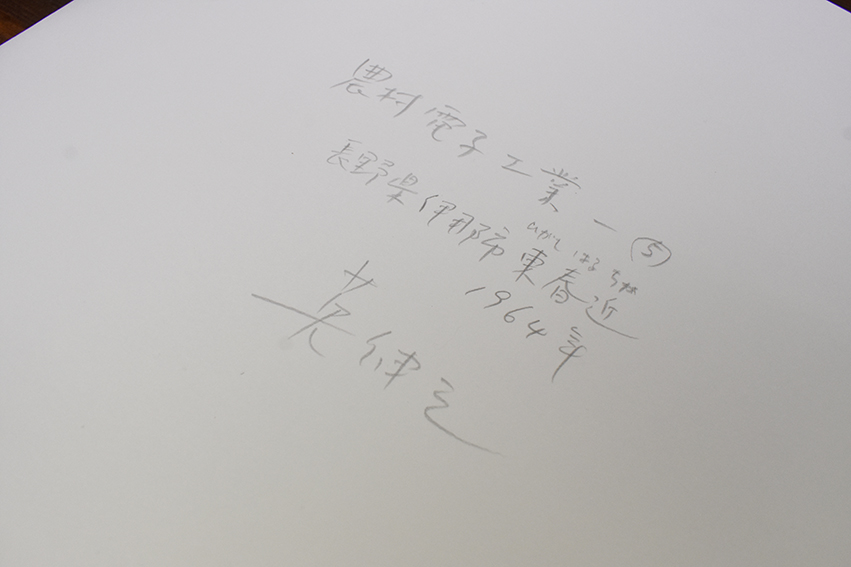 農村電子工業－⑤
ひがし はる ちか
長野県伊那市東春近
1964年
英伸三